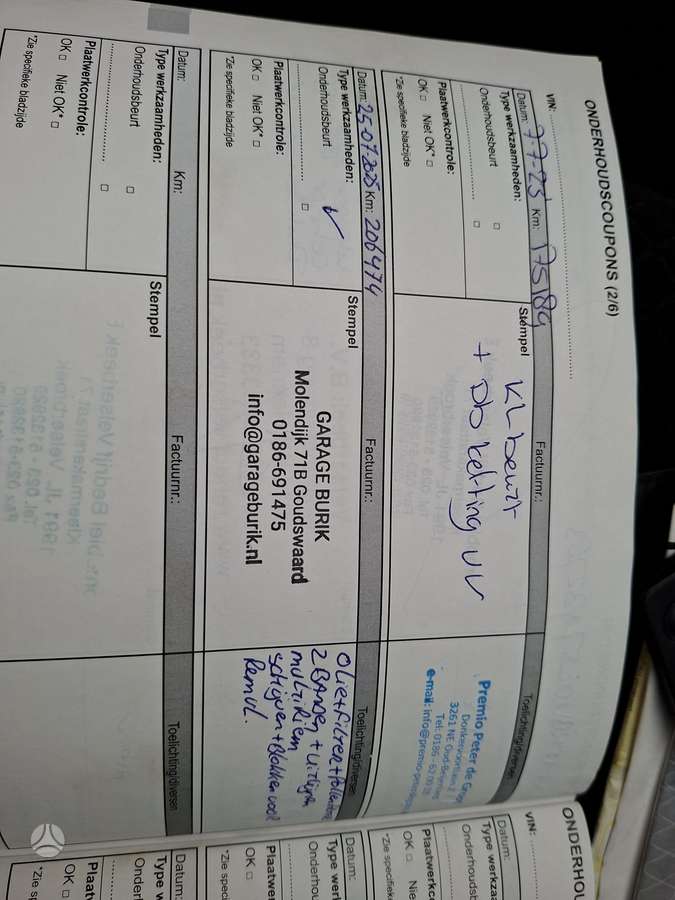 ONDERHOUDSCOUPONS (2/6)
VIN:
Datum: 7-7-23 Km: 175189
Type werkzaamheden:
Onderhoudsbeurt
Plaatwerkcontrole:
OK □ Niet OK* □
*Zie specifieke bladzijde
Stempel
Factuurnr.:
KL beurt
+ Db ketting VV
Toelichting/diversen
Premio Peter de
3261 NE Oud-Beijerland
Tel: 0186-
e-mail: info@premio-
Datum: 25-07-2025 Km: 206474
Type werkzaamheden:
Onderhoudsbeurt
Plaatwerkcontrole:
OK □ Niet OK* □
*Zie specifieke bladzijde
Stempel
Factuurnr.:
GARAGE BURIK
Molendijk 71B Goudswaard
0186-691475
info@garageburik.nl
Toelichting/diversen
Olie+Filter+Pollen
2 Banden + uitlijnen
multiriem
schijven+Blokken voor
Remvl.
Datum: Km:
Type werkzaamheden:
Onderhoudsbeurt
Plaatwerkcontrole:
OK □ Niet OK* □
*Zie specifieke bladzijde
Stempel
Factuurnr.:
Toelichting/diversen
ONDERHOU
VIN:
Datum:
Type werkza
Onderhouds
Plaatwerkc
OK □ Nie
*Zie specifieke
Datum:
Type werk
Onderhou
Plaatwer
OK □
*Zie spec
Datum:
Type w
Onder
Plaat
OK □
*Zie s